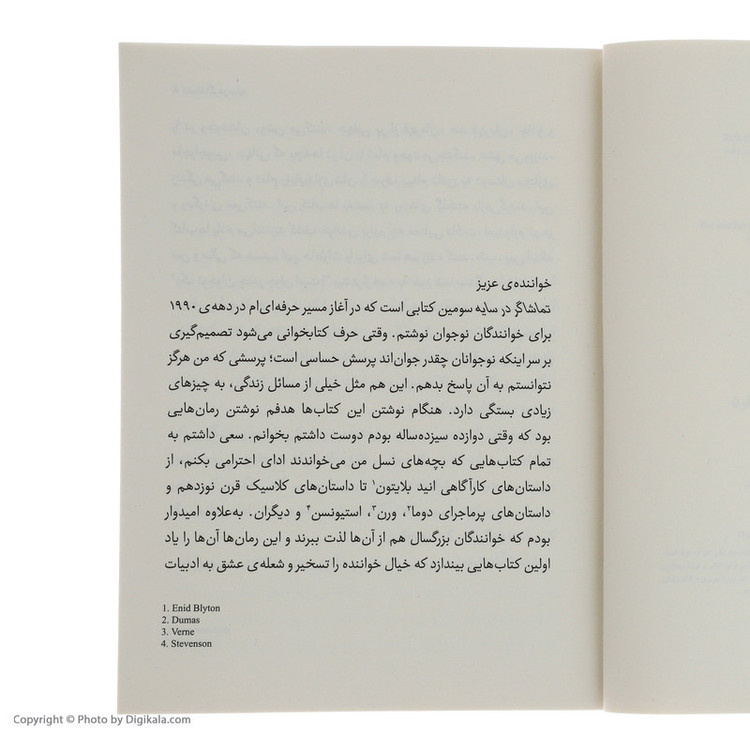 خواننده‌ی عزیز
تماشاگر در سایه سومین کتابی است که در آغاز مسیر حرفه‌ای‌ام در دهه‌ی ۱۹۹۰
برای خوانندگان نوجوان نوشتم. وقتی حرف کتابخوانی می‌شود تصمیم‌گیری
بر سر اینکه نوجوانان چقدر جوان‌اند پرسش حساسی است؛ پرسشی که من هرگز
نتوانستم به آن پاسخ بدهم. این هم مثل خیلی از مسائل زندگی، به چیزهای
زیادی بستگی دارد. هنگام نوشتن این کتاب‌ها هدفم نوشتن رمان‌هایی
بود که وقتی دوازده سیزده‌ساله بودم دوست داشتم بخوانم. سعی داشتم به
تمام کتاب‌هایی که بچه‌های نسل من می‌خواندند ادای احترامی بکنم، از
داستان‌های کارآگاهی انید بلایتون۱ تا داستان‌های کلاسیک قرن نوزدهم و
داستان‌های پرماجرای دوما۲، ورن۳، استیونسن۴ و دیگران. به‌علاوه امیدوار
بودم که خوانندگان بزرگسال هم از آن‌ها لذت ببرند و این رمان‌ها آن‌ها را یاد
اولین کتاب‌هایی بیندازد که خیال خواننده را تسخیر و شعله‌ی عشق به ادبیات
1. Enid Blyton
2. Dumas
3. Verne
4. Stevenson
Copyright © Photo by Digikala.com